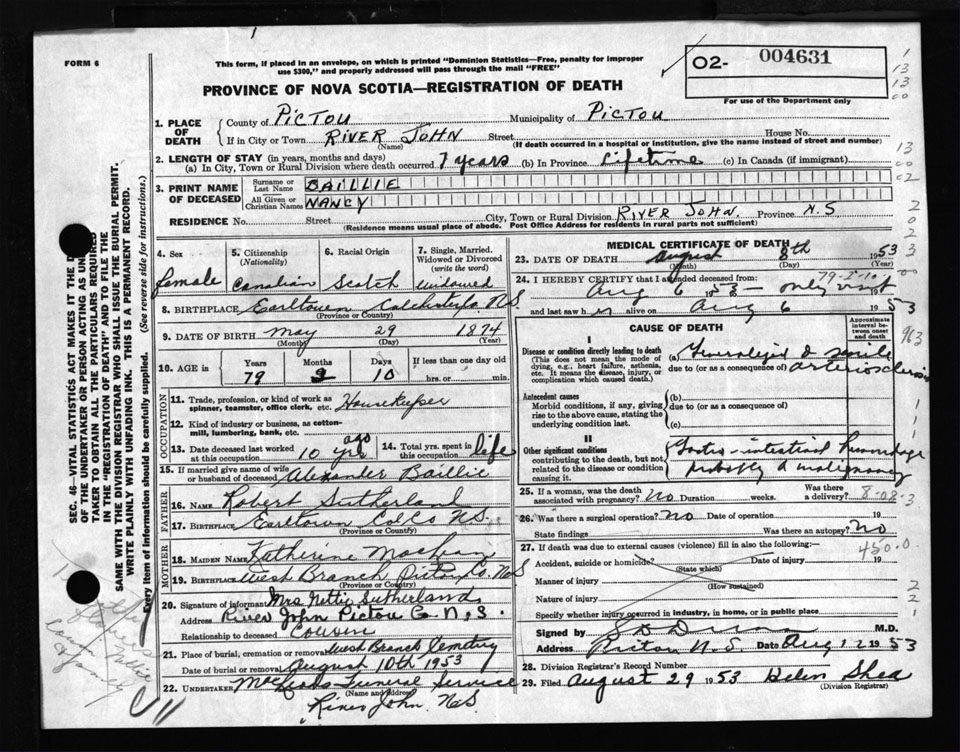 FORM 6
This form, if placed in an envelope, on which is printed "Dominion Statistics—Free, penalty for improper
use $300," and properly addressed will pass through the mail "FREE"
O2- 004631
For use of the Department only
PROVINCE OF NOVA SCOTIA—REGISTRATION OF DEATH
1. PLACE OF DEATH
County of PICTOU Municipality of PICTOU
If in City or Town RIVER JOHN Street House No.
(Name) (If death occurred in a hospital or institution, give the name instead of street and number)
2. LENGTH OF STAY (in years, months and days)
(a) In City, Town or Rural Division where death occurred 7 years (b) In Province Lifetime (c) In Canada (if immigrant)
3. PRINT NAME OF DECEASED
Surname or Last Name BAILLIE
All Given or Christian Names NANCY
RESIDENCE No. Street City, Town or Rural Division RIVER JOHN Province N.S
(Residence means usual place of abode. Post Office Address for residents in rural parts not sufficient)
4. Sex female
5. Citizenship (Nationality) Canadian
6. Racial Origin Scotch
7. Single, Married, Widowed or Divorced (write the word) Widowed
8. BIRTHPLACE Earltown Colchester Co. N.S.
(Province or Country)
9. DATE OF BIRTH May 29 1874
(Month) (Day) (Year)
10. AGE in Years 79 Months 2 Days 10 If less than one day old
hrs. or min.
OCCUPATION
11. Trade, profession, or kind of work as spinner, teamster, office clerk, etc. Housekeeper
12. Kind of industry or business, as cotton-mill, lumbering, bank, etc.
13. Date deceased last worked at this occupation 10 yrs ago
14. Total yrs. spent in this occupation life
15. If married give name of wife or husband of deceased Alexander Baillie
FATHER
16. NAME Robert Sutherland
17. BIRTHPLACE Earltown Col Co N.S.
(Province or Country)
MOTHER
18. MAIDEN NAME Katherine
19. BIRTHPLACE West Branch, Pictou Co. N.S
(Province or Country)
20. Signature of informant Mrs Nettie Sutherland
Address River John Pictou Co N.S.
Relationship to deceased Cousin
21. Place of burial, cremation or removal West Branch Cemetery
Date of burial or removal August 10th 1953
22. UNDERTAKER Funeral Service
(Name and address)
River John N.S
MEDICAL CERTIFICATE OF DEATH
23. DATE OF DEATH August 8th 1953
(Month) (Day) (Year)
24. I HEREBY CERTIFY that I attended deceased from: 79-2-10
Aug 6 1953 — only visit
and last saw her alive on Aug 6 1953
CAUSE OF DEATH
Approximate interval between onset and death
I
Disease or condition directly leading to death
(This does not mean the mode of dying, e.g., heart failure, asthenia, etc. It means the disease, injury, or complication which caused death.)
(a) Generalized & senile
due to (or as a consequence of) arteriosclerosis
Antecedent causes
Morbid conditions, if any, giving rise to the above cause, stating the underlying condition last.
(b)
due to (or as a consequence of)
(c)
II
Other significant conditions
contributing to the death, but not related to the disease or condition causing it.
Gastro-intestinal hemorrhage
probably a malignancy
25. If a woman, was the death associated with pregnancy? No Duration weeks. Was there a delivery? 8-08-3
26. Was there a surgical operation? No Date of operation 19
State findings Was there an autopsy? No
27. If death was due to external causes (violence) fill in also the following: 450.0
Accident, suicide or homicide? Date of injury 19
(State which)
Manner of injury
(How sustained)
Nature of injury
Specify whether injury occurred in industry, in home, or in public place
Signed by M.D.
Address Pictou N.S. Date Aug 12 1953
28. Division Registrar's Record Number
29. Filed August 29 1953 Helen Shea
(Division Registrar)
SEC. 46—VITAL STATISTICS ACT MAKES IT THE
OF THE UNDERTAKER OR PERSON ACTING AS
TAKER TO OBTAIN ALL THE PARTICULARS REQUIRED
IN THE "REGISTRATION OF DEATH" AND TO FILE THE
SAME WITH THE DIVISION REGISTRAR WHO SHALL ISSUE THE BURIAL PERMIT.
WRITE PLAINLY WITH UNFADING INK. THIS IS A PERMANENT RECORD.
Every item of information should be carefully supplied. (See reverse side for instructions.)